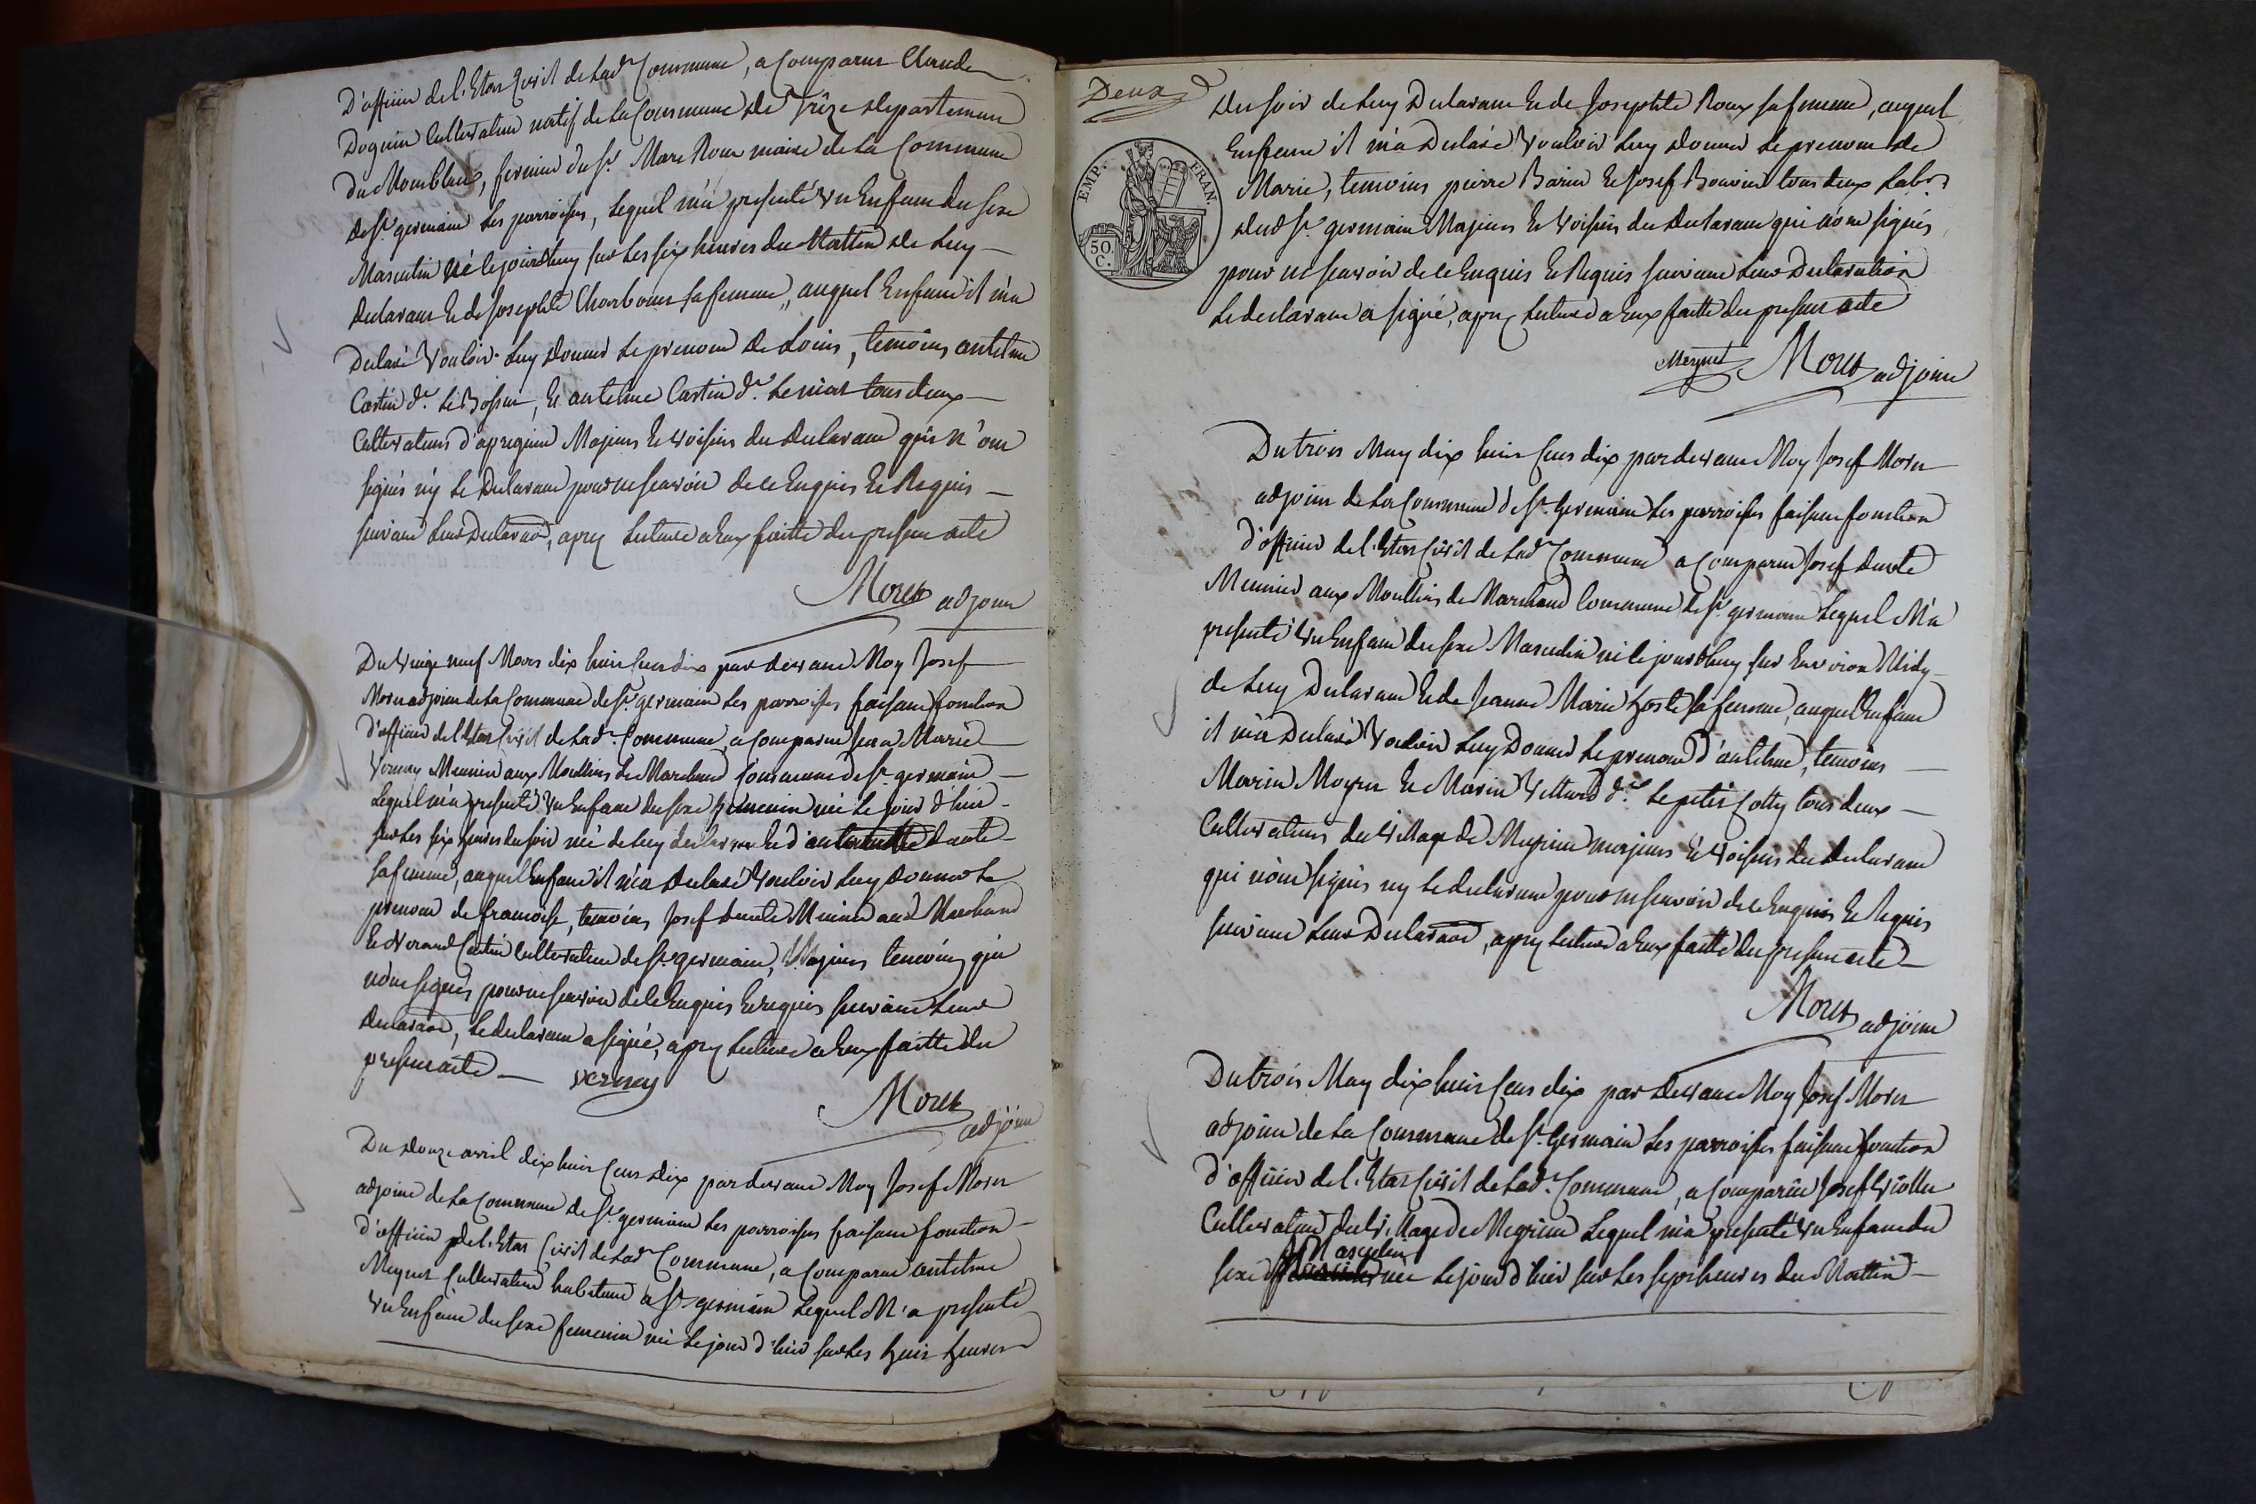 D'officier de l'Etat Civil de lad.e Commune, a Comparut Claude
Doguin Cultivateur natif de la Commune de Trêze departement
du Montblanc, fermier du S.r Marc Roux maire de la Commune
de S.t germain les parroisses, lequel m'a presenté Un Enfant du sexe
Masculin né lejourdhuy sur les six heures du Mattin de luy
declarant Et de Josephte Charbonet sa femme, auquel Enfant il m'a
Declaré Vouloir luy donner le prenom de Louis, temoins antelme
Castin d.t le Bossu, Et antelme Castin d.t le niat tous deux
Cultivateurs d'apregnin Majeurs Et voisins du declarant qui n'ont
signés ny le Declarant pour ne scavoir de ce Enquis Et Requis
suivant leur Declaraon, apres lecture a Eux faitte du present acte
Moret adjoint
Du Vingt neuf Mars dix huit Cens dix par devant Moy Josef
Moret adjoint de la Commune de S.t germain les parroisses faisant fonction
d'officier de l'Etat Civil de lad.e Commune, a Comparut Jean Marie
Vernay Meunier aux Moullins de Marchand Commune de S.t germain
Lequel m'a presenté Un Enfant du sexe femenin né le jour d'hier
sur les six heures du soir né de luy declarant Et d'antelmette ducote
sa femme, auquel Enfant il m'a declaré Vouloir luy donner le
prenom de francoise, temoins Josef ducote Meunier aud. Marchand
Et Verand Castin Cultivateur de S.t germain, Majeurs temoins qui
nont signés pour ne scavoir de ce Enquis Et requis suivant leur
declaraon, le declarant a signé, apres lecture a Eux faitte du
present acte vernay
Moret adjoint
Du douze avril dix huit Cens dix par devant Moy Josef Moret
adjoint de la Commune de S.t germain les parroisses faisant fonction
d'officier de l'Etat Civil de lad.e Commune, a Comparut antelme
Meynet Cultivateur habitant a S.t germain Lequel M'a presenté
Un Enfant du sexe femenin né le jour d'hier sur les huit heures
Deux
EMP. FRAN.
50. C.
du soir de luy Declarant Et de Josephte Roux sa femme, auquel
Enfant il m'a Declaré Vouloir luy donner le prenom de
Marie, temoins pierre Barin Et Josef Bouvier tous deux Lab.rs
dud S.t germain Majeurs Et Voisins du declarant qui n'ont signés
pour ne scavoir de ce Enquis Et Requis suivant leur Declaration
Le declarant a signé, apres lecture a Eux faitte du present acte
Meynet Moret adjoint
Du trois May dix huit Cens dix par devant Moy Josef Moret
adjoint de la Commune de S.t Germain les parroisses faisant fonction
d'officier de l'Etat Civil de lad.e Commune a Comparut Josef ducote
Meunier aux Moullins de Marchand Commune de S.t germain Lequel M'a
presenté Un Enfant du sexe Masculin né le jourdhuy sur Environ Midy
de luy Declarant Et de Jeanne Marie hoste sa femme, auquel Enfant
il m'a Declaré Vouloir luy Donner le prenom d'antelme, temoins
Marin Moyret Et Marin Vettard d.t le petit Cotty tous deux
Cultivateurs du Village de Meyrieu majeurs Et Voisins du declarant
qui n'ont signés ny le declarant pour ne scavoir de ce Enquis Et Requis
suivant leur Declaraon, apres lecture a Eux faitte du present acte
Moret adjoint
Du trois May dix huit Cens dix par devant Moy Josef Moret
adjoint de la Commune de S.t Germain les parroisses faisant fonction
d'officier de l'Etat Civil de lad.e Commune, a Comparut Josef Viollet
Cultivateur du Village de Megrieu Lequel m'a presenté Un Enfant du
Masculin
sexe né le jour d'hier sur les sept heures du Mattin